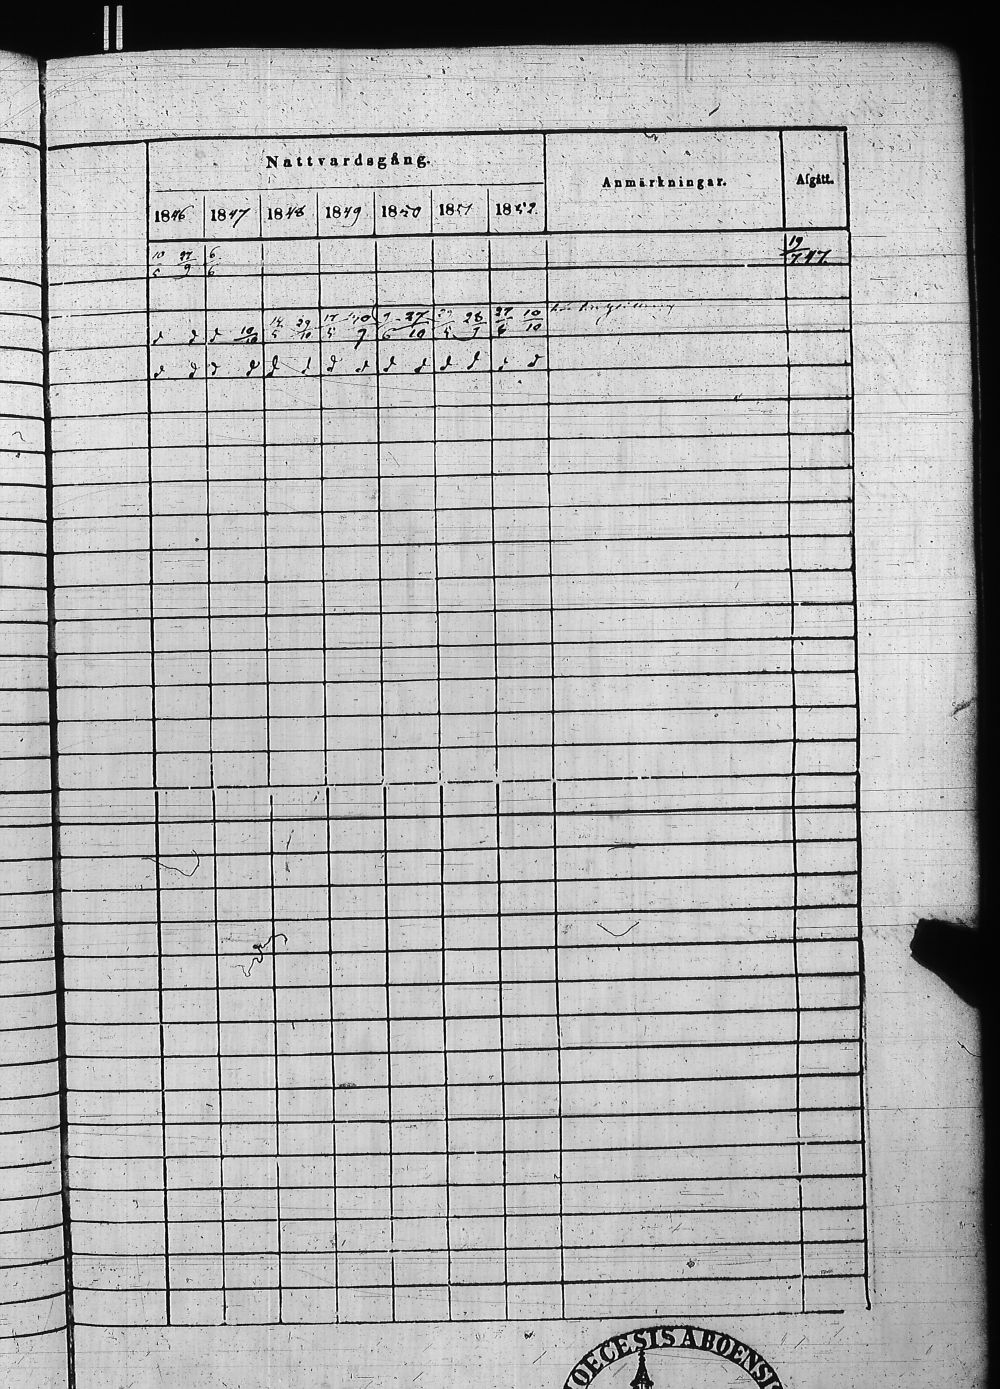 Nattvardsgång.
Anmärkningar.
Afgått.
1846 1847 1848 1849 1850 1851 1852
10/5 27/9 6/6 19/7 47.
d d d 10/10 14/5 29/10 17/5 9/6 27/10 28/9 27/6 10/10
d d d d d d d d d d d d d d
DIOECESIS ABOENSIS